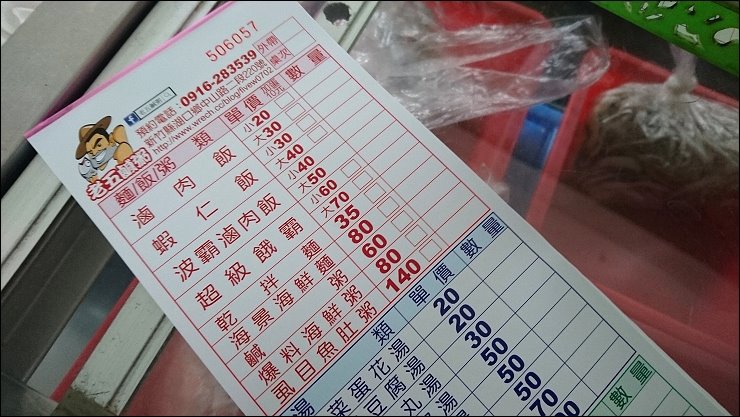 506057
預約電話:0916-283539 外帶
新竹縣湖口鄉中山路二段220號 桌次
老五鹹粥
麵/飯/粥 類 單價 數量
滷肉飯 小20 大30
蝦仁飯 小30 大40
波霸滷肉飯 小40 大50
超級餓霸 小60 大70
乾拌麵 35
海景海鮮麵 80
鹹粥 60
爆料海鮮粥 80
虱目魚肚粥 140
湯 類 單價 數量
菜蛋花湯 20
豆腐湯 20
丸湯 30
50
50
50
70
數量